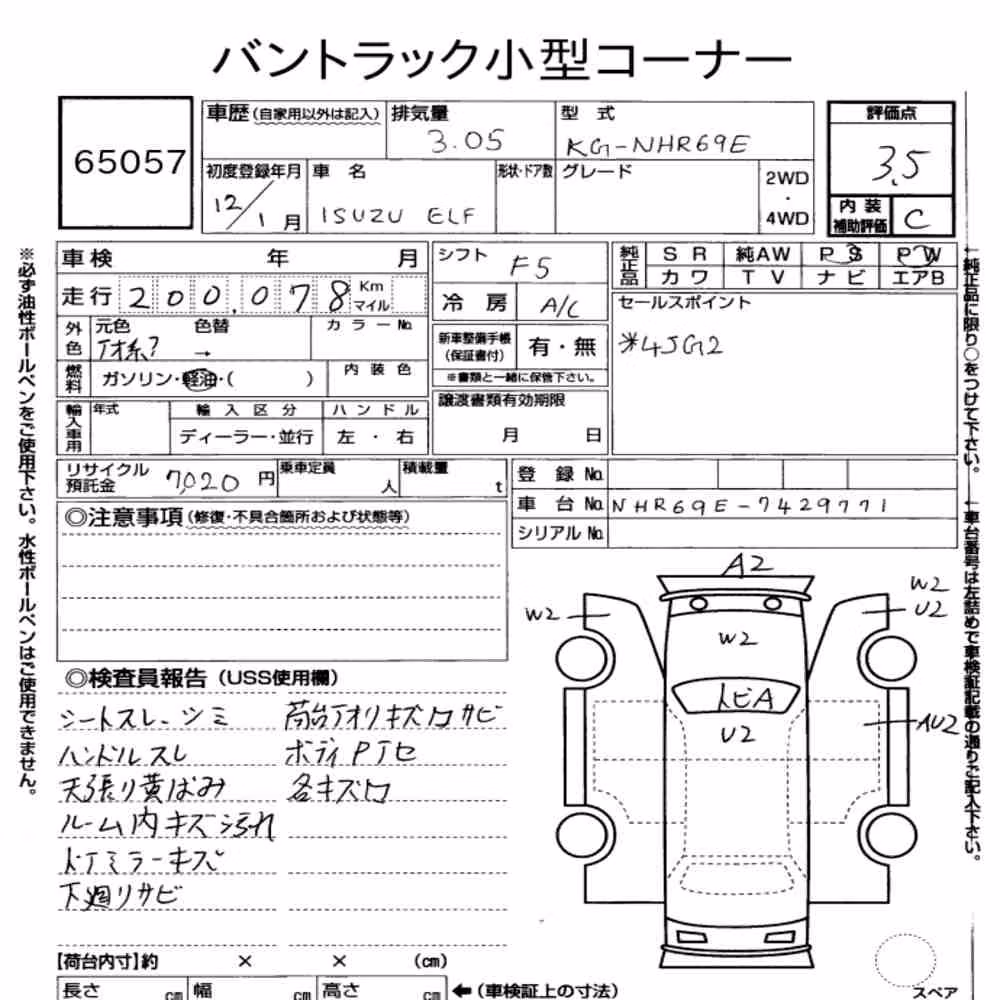 バントラック小型コーナー
65057
車歴(自家用以外は記入) 排気量 型式 評価点
3.05 KG-NHR69E 3.5
初度登録年月 車名 形状・ドア数 グレード 2WD・4WD
12/1月 ISUZU ELF 内装補助評価 C
車検 年 月 シフト F5 純正品 SR 純AW PS PW
カワ TV ナビ エアB
走行 200,078 Km マイル 冷房 A/C セールスポイント
外色 元色 色替 カラーNo. 新車整備手帳(保証書付) 有・無 ※4JG2
→ ※書類と一緒に保管下さい。
燃料 ガソリン・軽油・( ) 内装色
譲渡書類有効期限
輸入車用 年式 輸入区分 ハンドル 月 日
ディーラー・並行 左・右
リサイクル預託金 7,020円 乗車定員 人 積載量 t 登録No.
車台No. NHR69E-7429771
◎注意事項(修復・不具合箇所および状態等) シリアルNo.
A2
W2 W2
U2
W2
トビA
U2
AU2
◎検査員報告(USS使用欄)
シートスレ・シミ 荷台アオリキズ凹サビ
ハンドルスレ ボディPTセ
天張り黄ばみ 各キズ凹
ルーム内キズ汚れ
ドアミラーキズ
下廻りサビ
【荷台内寸】約 × × (cm)
長さ cm 幅 cm 高さ cm ←(車検証上の寸法) スペア
※必ず油性ボールペンをご使用下さい。水性ボールペンはご使用できません。
←純正品に限り○をつけて下さい。
←車台番号は左詰めで車検証記載の通りご記入下さい。